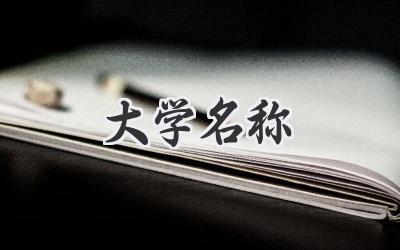 大学名称